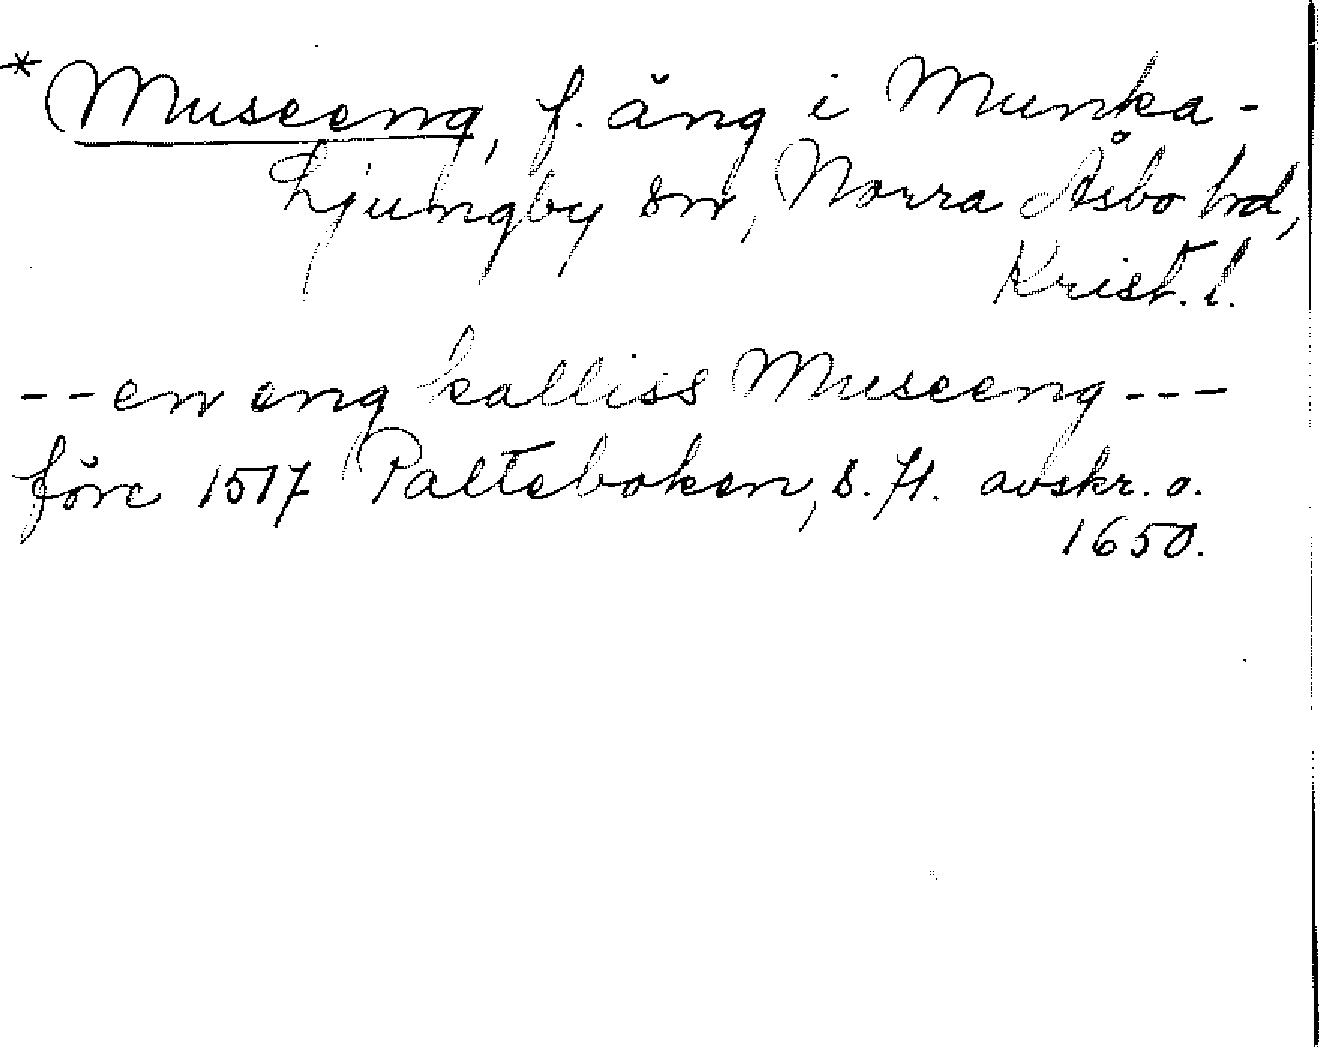 *Museeng, f. äng i Munka-
Ljungby sn, Norra Åsbo hd,
Krist. l.
-- en eng kalliss Museeng ---
före 1517 Palteboken, s. 71. avskr. o.
1650.